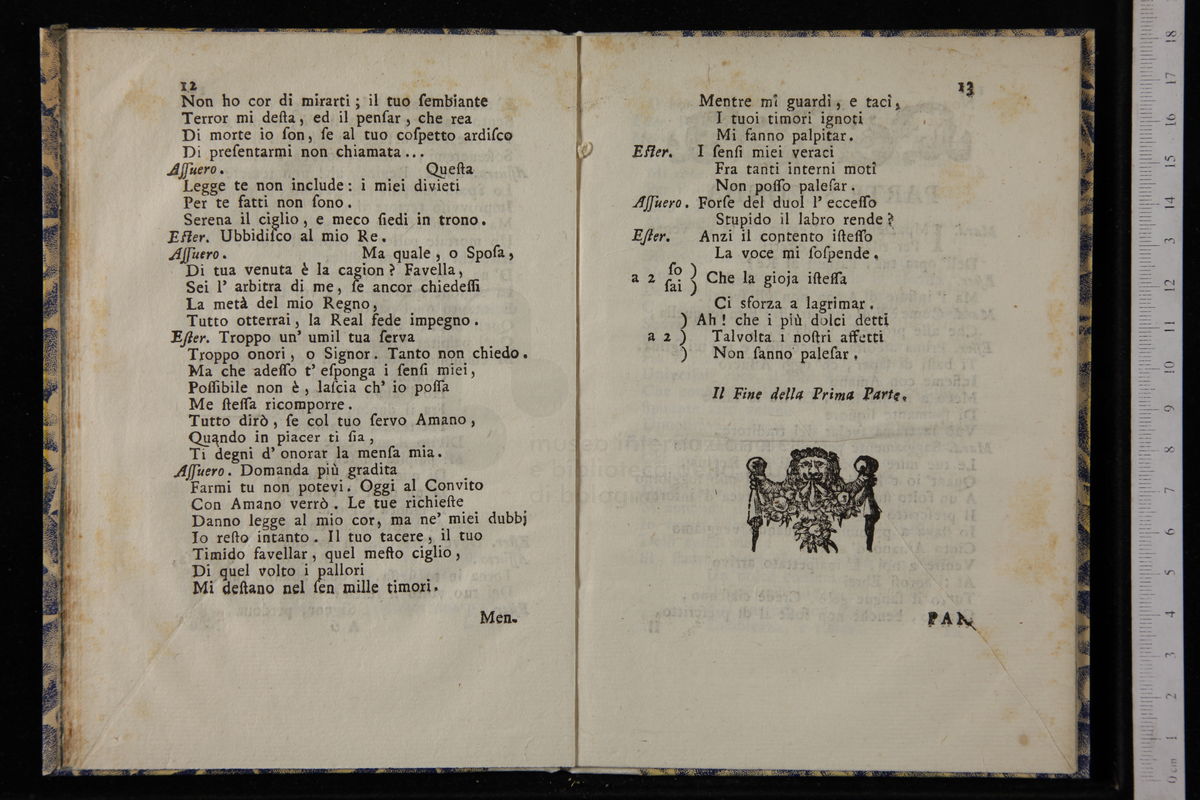 12
Non ho cor di mirarti ; il tuo ſembiante
Terror mi deſta , ed il penſar , che rea
Di morte io ſon , ſe al tuo coſpetto ardiſco
Di preſentarmi non chiamata ...
Aſſuero . Queſta
Legge te non include : i miei divieti
Per te fatti non ſono .
Serena il ciglio , e meco ſiedi in trono .
Eſter. Ubbidiſco al mio Re .
Aſſuero . Ma quale , o Spoſa ,
Di tua venuta è la cagion ? Favella ,
Sei l' arbitra di me , ſe ancor chiedeſſi
La metà del mio Regno ,
Tutto otterrai , la Real fede impegno .
Eſter. Troppo un' umil tua ſerva
Troppo onori , o Signor . Tanto non chiedo .
Ma che adeſſo t' eſponga i ſenſi miei ,
Poſſibile non è , laſcia ch' io poſſa
Me ſteſſa ricomporre .
Tutto dirò , ſe col tuo ſervo Amano ,
Quando in piacer ti ſia ,
Ti degni d' onorar la menſa mia .
Aſſuero . Domanda più gradita
Farmi tu non potevi . Oggi al Convito
Con Amano verrò . Le tue richieſte
Danno legge al mio cor, ma ne' miei dubbj
Io reſto intanto . Il tuo tacere , il tuo
Timido favellar , quel meſto ciglio ,
Di quel volto i pallori
Mi deſtano nel ſen mille timori .
Men.
13
Mentre mi guardi , e taci ,
I tuoi timori ignoti
Mi fanno palpitar .
Eſter. I ſenſi miei veraci
Fra tanti interni moti
Non poſſo paleſar .
Aſſuero . Forſe del duol l' ecceſſo
Stupido il labro rende ?
Eſter. Anzi il contento iſteſſo
La voce mi ſoſpende .
ſo )
a 2 Che la gioja iſteſſa
ſai )
Ci sforza a lagrimar .
) Ah ! che i più dolci detti
a 2 ) Talvolta i noſtri affetti
) Non ſanno paleſar .
Il Fine della Prima Parte.
PAR-